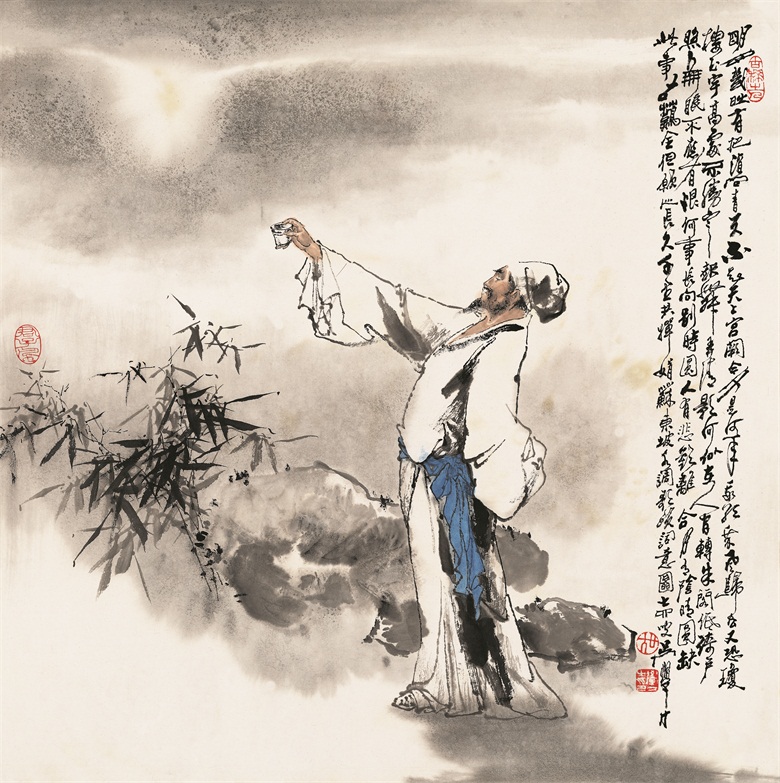 明月幾时有把酒问青天不知天上宫闕今夕是何年我欲乘風歸去又恐瓊
樓玉宇高處不勝寒起舞弄清影何似在人間轉朱閣低綺戶
照無眠不應有恨何事長向別時圓人有悲歡離合月有陰晴圓缺
此事古難全但願人長久千里共嬋娟蘇東坡水調歌頭詞意圖